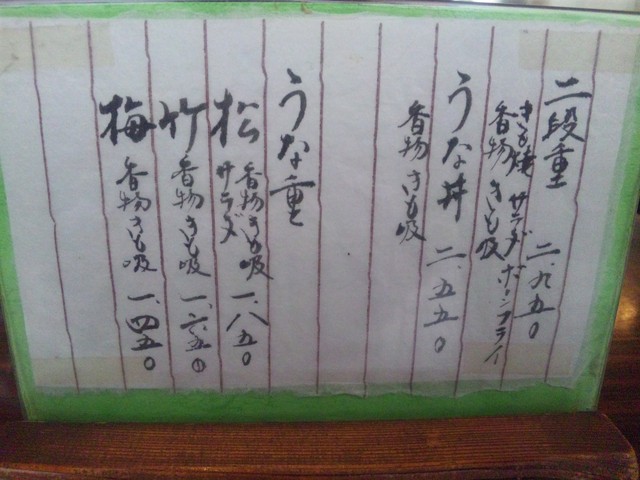 二段重 二、九五〇
きも焼 サラダ ボーンフライ
香物 きも吸
うな丼 二、五五〇
香物 きも吸
うな重
松 香物 きも吸 一、八五〇
サラダ
竹 香物 きも吸 一、六五〇
梅 香物 きも吸 一、四五〇